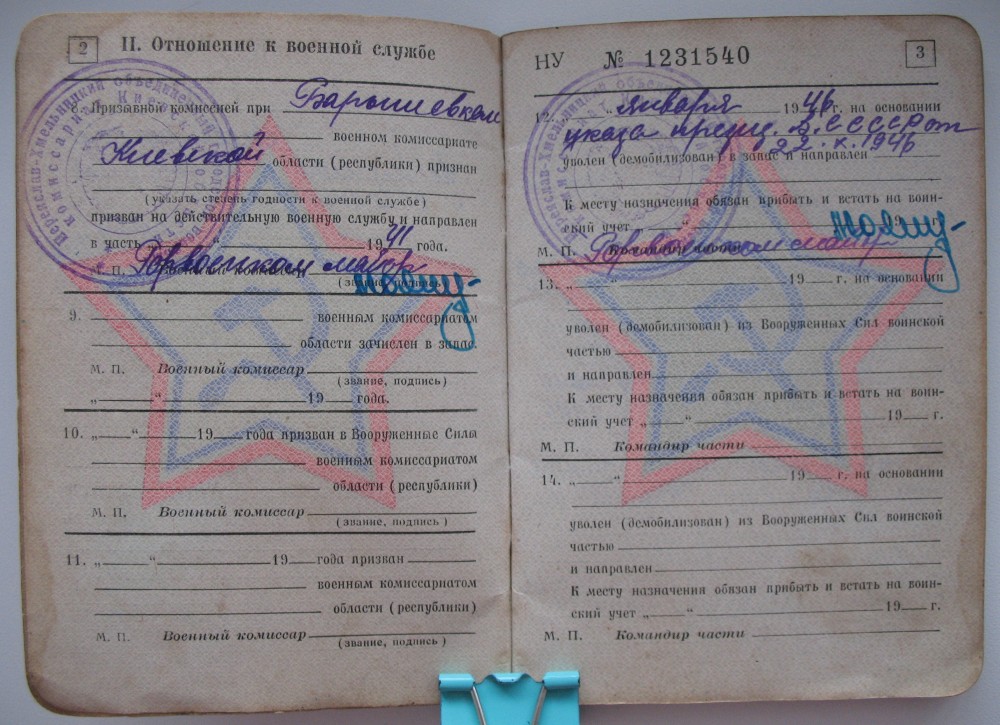 2
II. Отношение к военной службе
8. Призывной комиссией при Барышевском
военном комиссариате
Киевской области (республики) признан
(указать степень годности к военной службе)
призван на действительную военную службу и направлен
в часть „ “ 1941 года.
М. П. Горвоенком майор
(звание, подпись)
9. военным комиссариатом
области зачислен в запас.
М. П. Военный комиссар
(звание, подпись)
„ “ 19 года.
10. „ “ 19 года призван в Вооруженные Силы
военным комиссариатом
области (республики)
М. П. Военный комиссар
(звание, подпись)
11. „ “ 19 года призван
военным комиссариатом
области (республики)
М. П. Военный комиссар
(звание, подпись)
НУ № 1231540
3
12. „ января 1946 г. на основании
указа през. В. С СССР от
22.X.1946
уволен (демобилизован) в запас и направлен
К месту назначения обязан прибыть и встать на воин-
ский учет „ “ 19 г.
М. П. Горвоенком майор
13. „ “ 19 г. на основании
уволен (демобилизован) из Вооруженных Сил воинской
частью
и направлен
К месту назначения обязан прибыть и встать на воин-
ский учет „ “ 19 г.
М. П. Командир части
14. „ “ 19 г. на основании
уволен (демобилизован) из Вооруженных Сил воинской
частью
и направлен
К месту назначения обязан прибыть и встать на воин-
ский учет „ “ 19 г.
М. П. Командир части